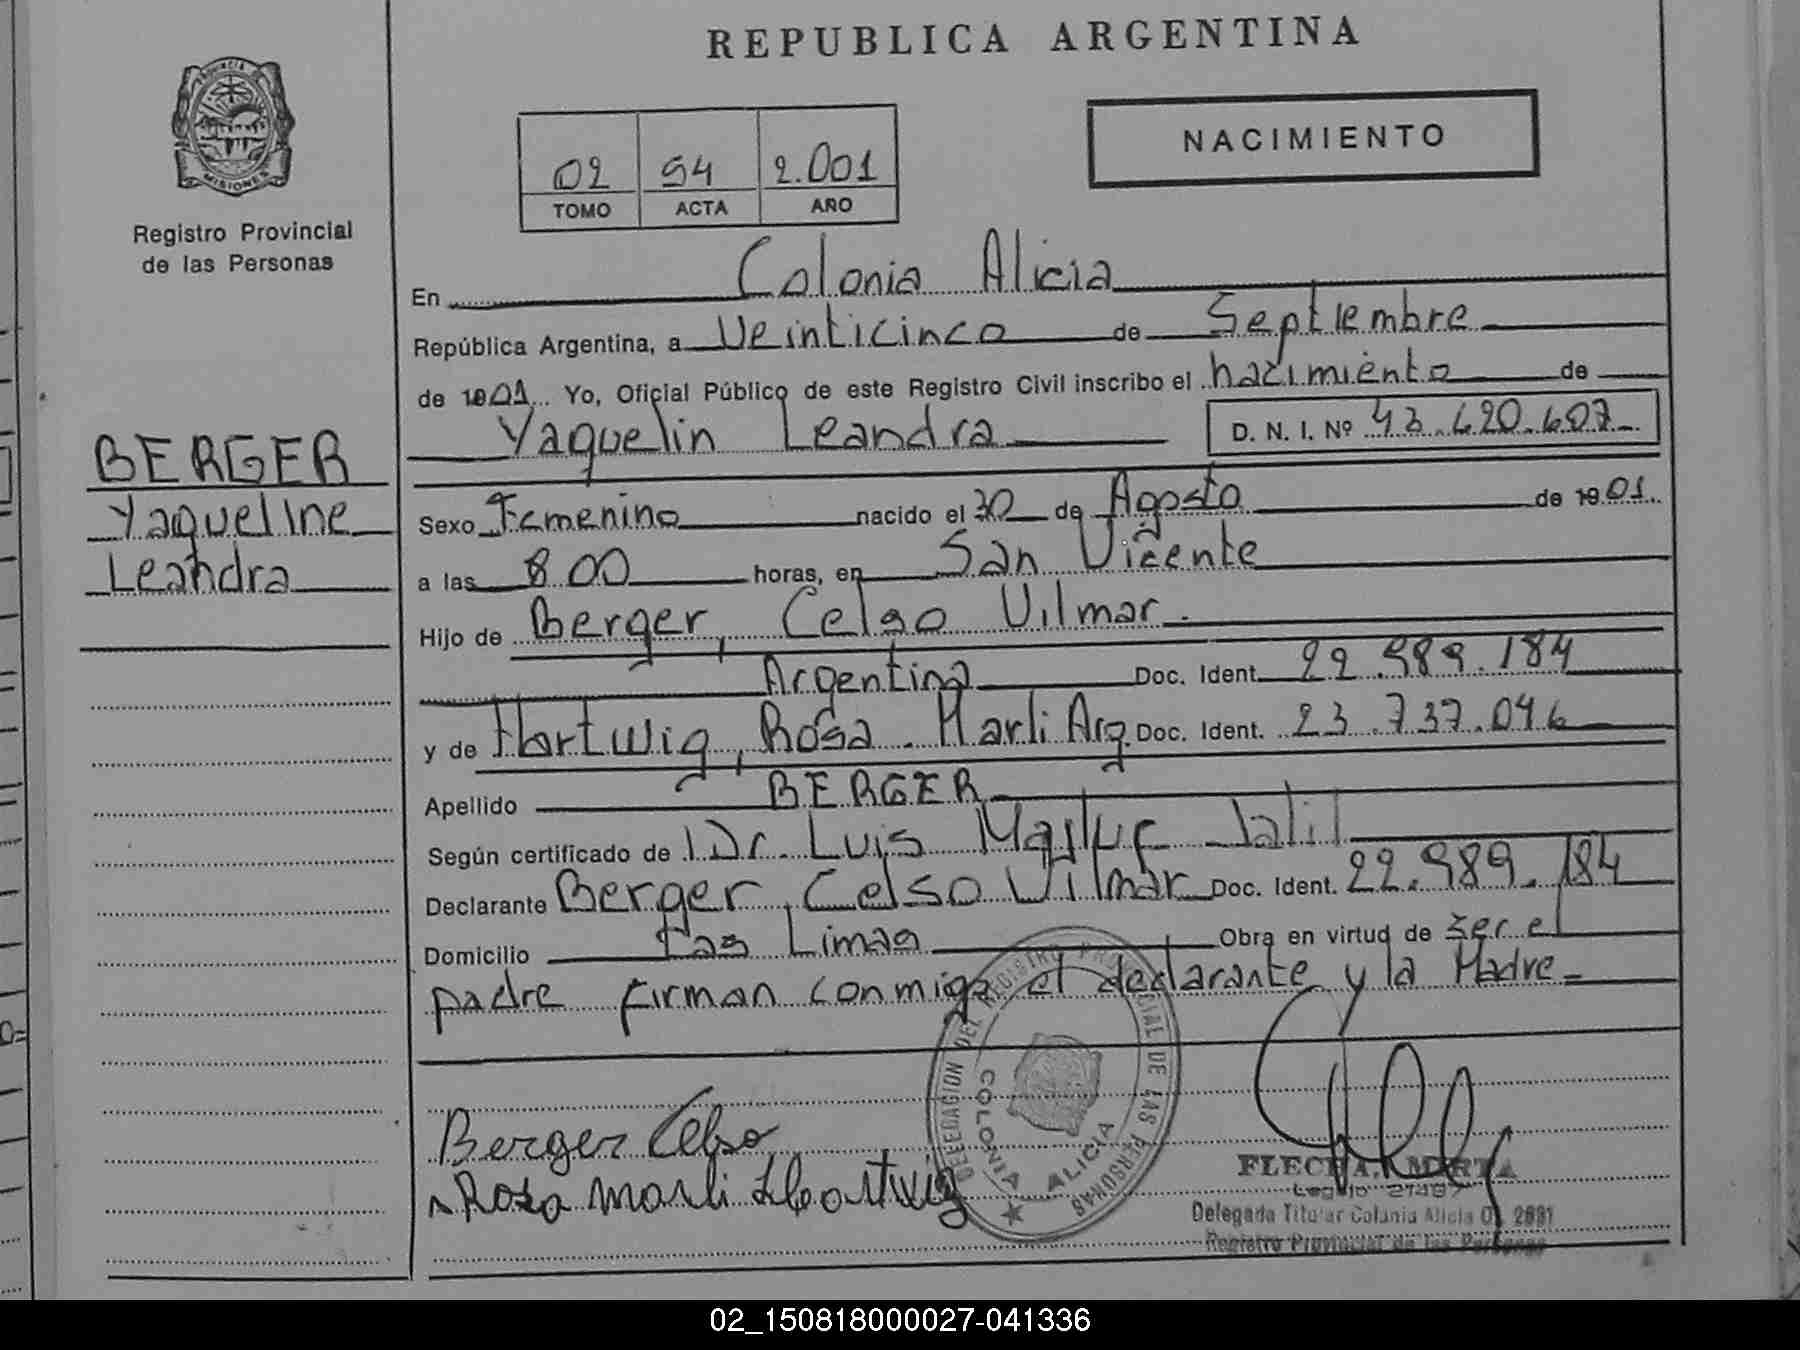 REPUBLICA ARGENTINA
PROVINCIA DE
MISIONES
Registro Provincial
de las Personas
02 54 2.001
TOMO ACTA AÑO
NACIMIENTO
En Colonia Alicia
República Argentina, a Veinticinco de Septiembre
de 1901 Yo, Oficial Público de este Registro Civil inscribo el nacimiento de
Yaquelin Leandra D. N. I. Nº 43.620.607
BERGER
Yaqueline
Leandra
Sexo Femenino nacido el 30 de Agosto de 1901
a las 8.00 horas, en San Vicente
Hijo de Berger, Celso Vilmar.
Argentina Doc. Ident. 22.989.184
y de Hartwig, Rosa Marli Arg. Doc. Ident. 23.737.046
Apellido BERGER
Según certificado de Dr. Luis Jalil
Declarante Berger, Celso Vilmar Doc. Ident. 22.989.184
Domicilio Las Limas Obra en virtud de ser el
padre firman conmigo el declarante y la Madre
DELEGACION DEL REGISTRO PROVINCIAL DE LAS PERSONAS
COLONIA ALICIA
Berger Celso
Rosa Marli Hartwig
FLECHA, MIRTA
Legajo
Delegada Titular Colonia Alicia
Registro Provincial de las Personas
02_150818000027-041336